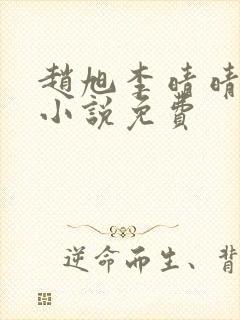 趙旭李晴晴
小説免費
逆命而生、背